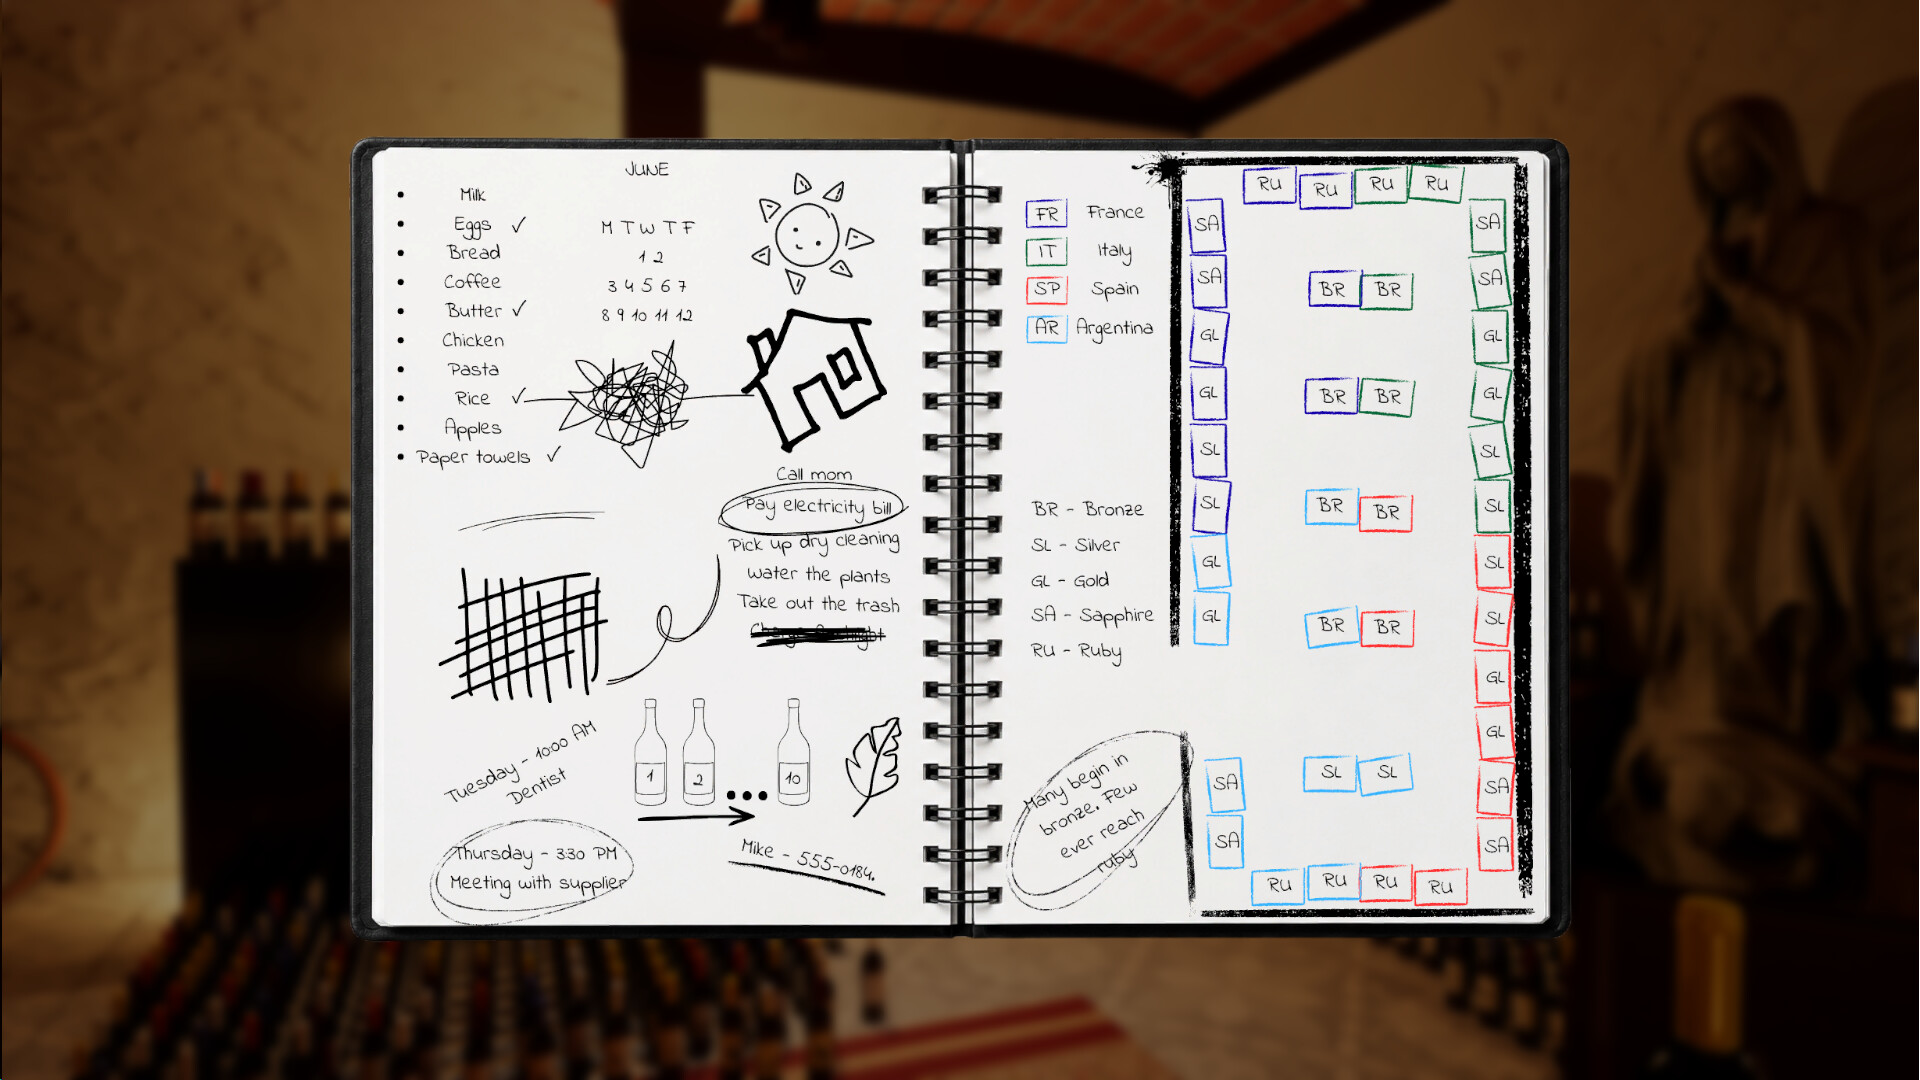 JUNE
Milk
Eggs ✓
Bread
Coffee
Butter ✓
Chicken
Pasta
Rice ✓
Apples
Paper towels ✓
M T W T F
1 2
3 4 5 6 7
8 9 10 11 12
Call mom
Pay electricity bill
Pick up dry cleaning
Water the plants
Take out the trash
Tuesday - 10:00 AM
Dentist
1 2 ... 10
Thursday - 3:30 PM
Meeting with supplier
Mike - 555-0184.
FR France
IT Italy
SP Spain
AR Argentina
BR - Bronze
SL - Silver
GL - Gold
SA - Sapphire
RU - Ruby
Many begin in
bronze. Few
ever reach
ruby
RU RU RU RU
SA SA
SA SA
BR BR
GL GL
GL BR BR GL
SL SL
SL BR BR SL
GL SL
GL BR BR SL
GL
GL
SA SL SL SA
SA SA
RU RU RU RU